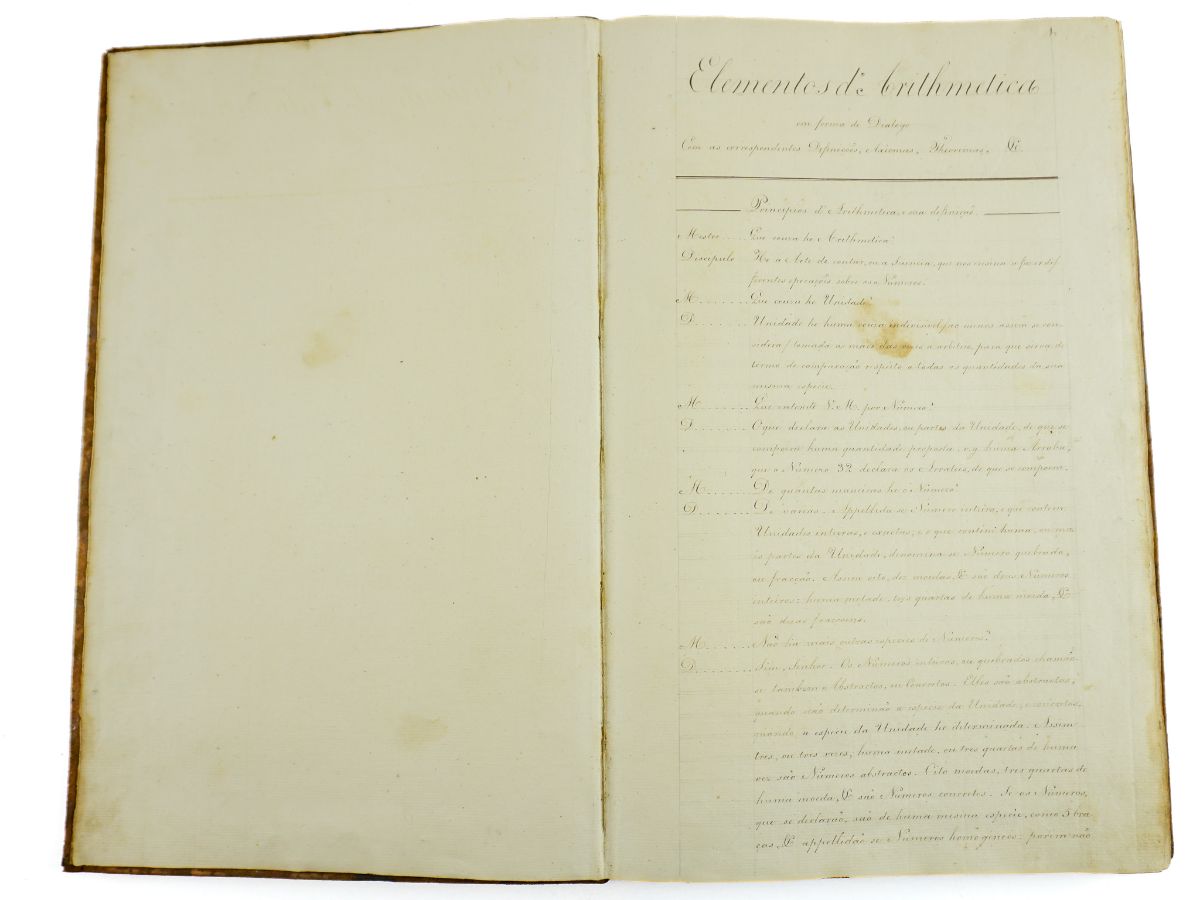 1.
Elementos d'Arithmetica
em forma de Dialogo
Com as correspondentes Definicões, Axiomas, Theoremas, &c
Principios d'Arithmetica, e sua definição.
Mestre ..... Que couza he Arithmetica?
Discipulo He a Arte de contar, ou a Sciencia, que nos ensina a fazer dif
ferentes operações sobre os Números.
M....... Que couza he Unidade?
D....... Unidade he huma couza indivisivel (ao menos assim se con-
sidera) tomada as mais das vezes a arbitrio, para que sirva de
termo de comparação respeito a todas as quantidades da sua
mesma especie.
M....... Que entende V. M. por Número?
D....... O que declara as Unidades, ou partes da Unidade, de que se
compoem huma quantidade proposta. v.g. huma Arroba,
que o Número 32 declara os Arrateis, de que se compoem.
M....... De quantas maneiras he o Número?
D....... De varias. Appellida se Número inteiro, o que contem
Unidades inteiras, e exactas; e o que contêm huma, ou ma-
is partes da Unidade, denomina se Número quebrado,
ou fracção. Assim oito, dez moedas, &c são dous Números
inteiros: huma metade, tres quartas de huma moeda, &c
são duas fraccoens.
M....... Não ha mais outras especies de Números?
D....... Sim, Senhor. Os Números inteiros, ou quebrados chamão
se tambem Abstractos, ou Concretos. Elles são abstractos,
quando não determinão a especie da Unidade; e concretos,
quando a especie da Unidade he determinada. Assim
tres, ou tres vezes; huma metade, ou tres quartas de huma
vez são Números abstractos. Oito moedas, tres quartas de
huma moeda, &c são Números concretos. Se os Números,
que se declarão, são de huma mesma especie, como 5 bra
ças, &c appellidão se Números homogineos: porem não